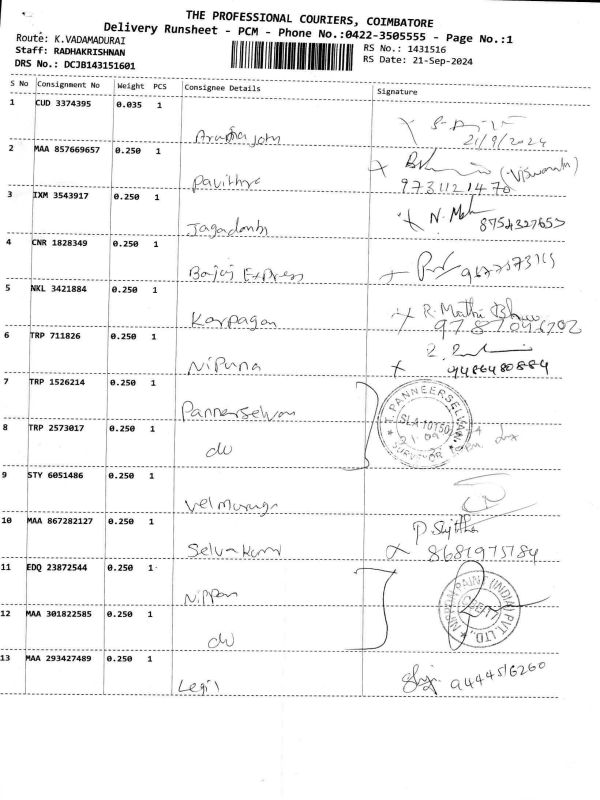 THE PROFESSIONAL COURIERS, COIMBATORE
Delivery Runsheet - PCM - Phone No.:0422-3505555 - Page No.:1
Route: K.VADAMADURAI
Staff: RADHAKRISHNAN
DRS No.: DCJB143151601
RS No.: 1431516
RS Date: 21-Sep-2024
S No Consignment No Weight PCS Consignee Details Signature
1 CUD 3374395 0.035 1
John
21/9/2024
2 MAA 857669657 0.250 1
Pavithra
9731121470
3 IXM 3543917 0.250 1
Jagadamba
N. 8754327655
4 CNR 1828349 0.250 1
Bajaj Express
5 NKL 3421884 0.250 1
Karpagam
R. Mathi
6 TRP 711826 0.250 1
Nipuna
7 TRP 1526214 0.250 1
Pannerselvam
T. PANNEERSELVAM
SURVEYOR
8 TRP 2573017 0.250 1
do
9 STY 6051486 0.250 1
Velmurugan
10 MAA 867282127 0.250 1
Selvakumar
8681975184
11 EDQ 23872544 0.250 1
Nippon
NIPPON PAINT (INDIA) PVT. LTD.,
12 MAA 301822585 0.250 1
do
13 MAA 293427489 0.250 1
Legil
9444516260